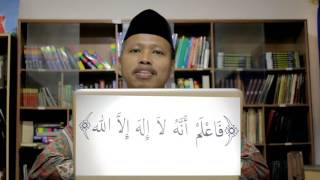 ﴿فَاعْلَمْ أَنَّهُ لاَ إِلهَ إِلاَّ الله﴾